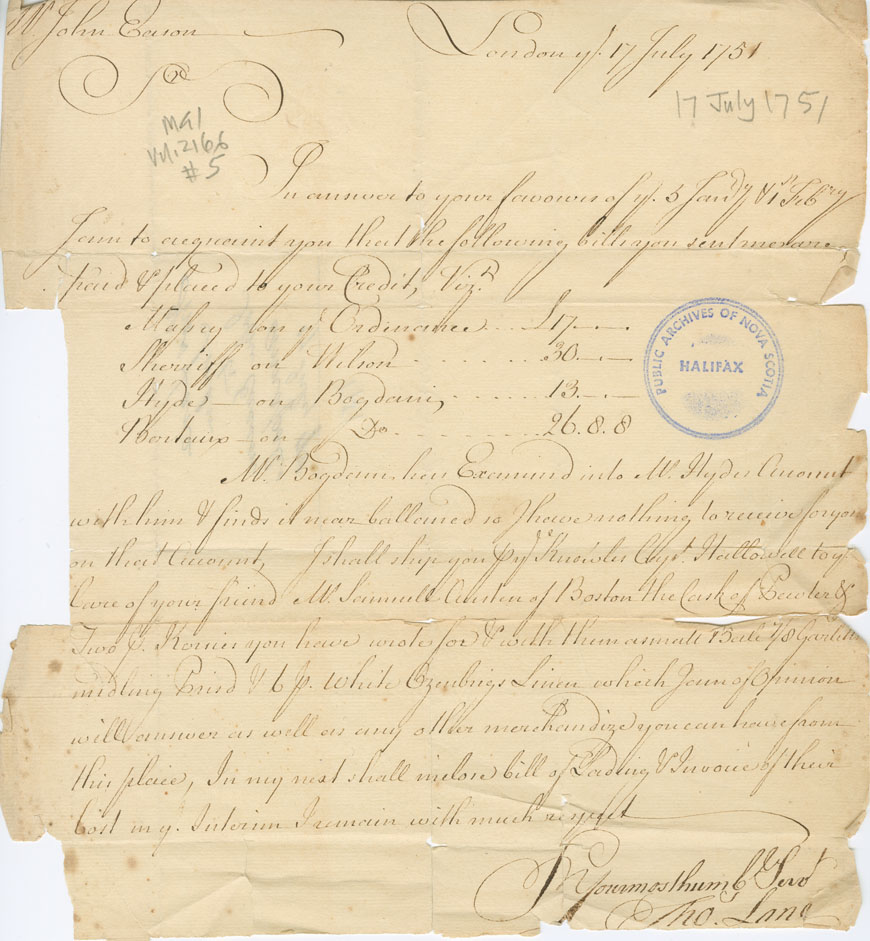 Mr. John Eason
London ye. 17 July 1751
Sr.
17 July 1751
MG1
Vol. 2166
#5
In answer to your favours of ye. 5 Jan'y & 1st Feb'ry
I am to acquaint you that the following bills you sent me are
paid & placed to your Credit, Vizt.
Massey on ye Ordenance £17 . - . -
Sherriff on Wilson 30 . - . -
Hyde on Bogdani 13 . - . -
on Do 26.8.8
Mr. Bogdani has Examind into Mr. Hydes Account
with him & finds it near ballanced so I have nothing to receive for you
on that Account, I shall ship you p ye Knowles Capt. Hallowell to ye
Care of your friend Mr. Samuell Austen of Boston the Cask of Pewter &
Two you have wrote for & with them a small Bale 7/8
midling Prisd & 6 ps. white Ozenbrigs Linen which I am of Opinion
will answer as well as any other merchandize you can have from
this place, In my next shall inclose bill of Lading & Invoice of their
Cost in ye. Interim I remain with much respect
Sr Your most humb Servt
Tho. Lane
PUBLIC ARCHIVES OF NOVA SCOTIA
HALIFAX